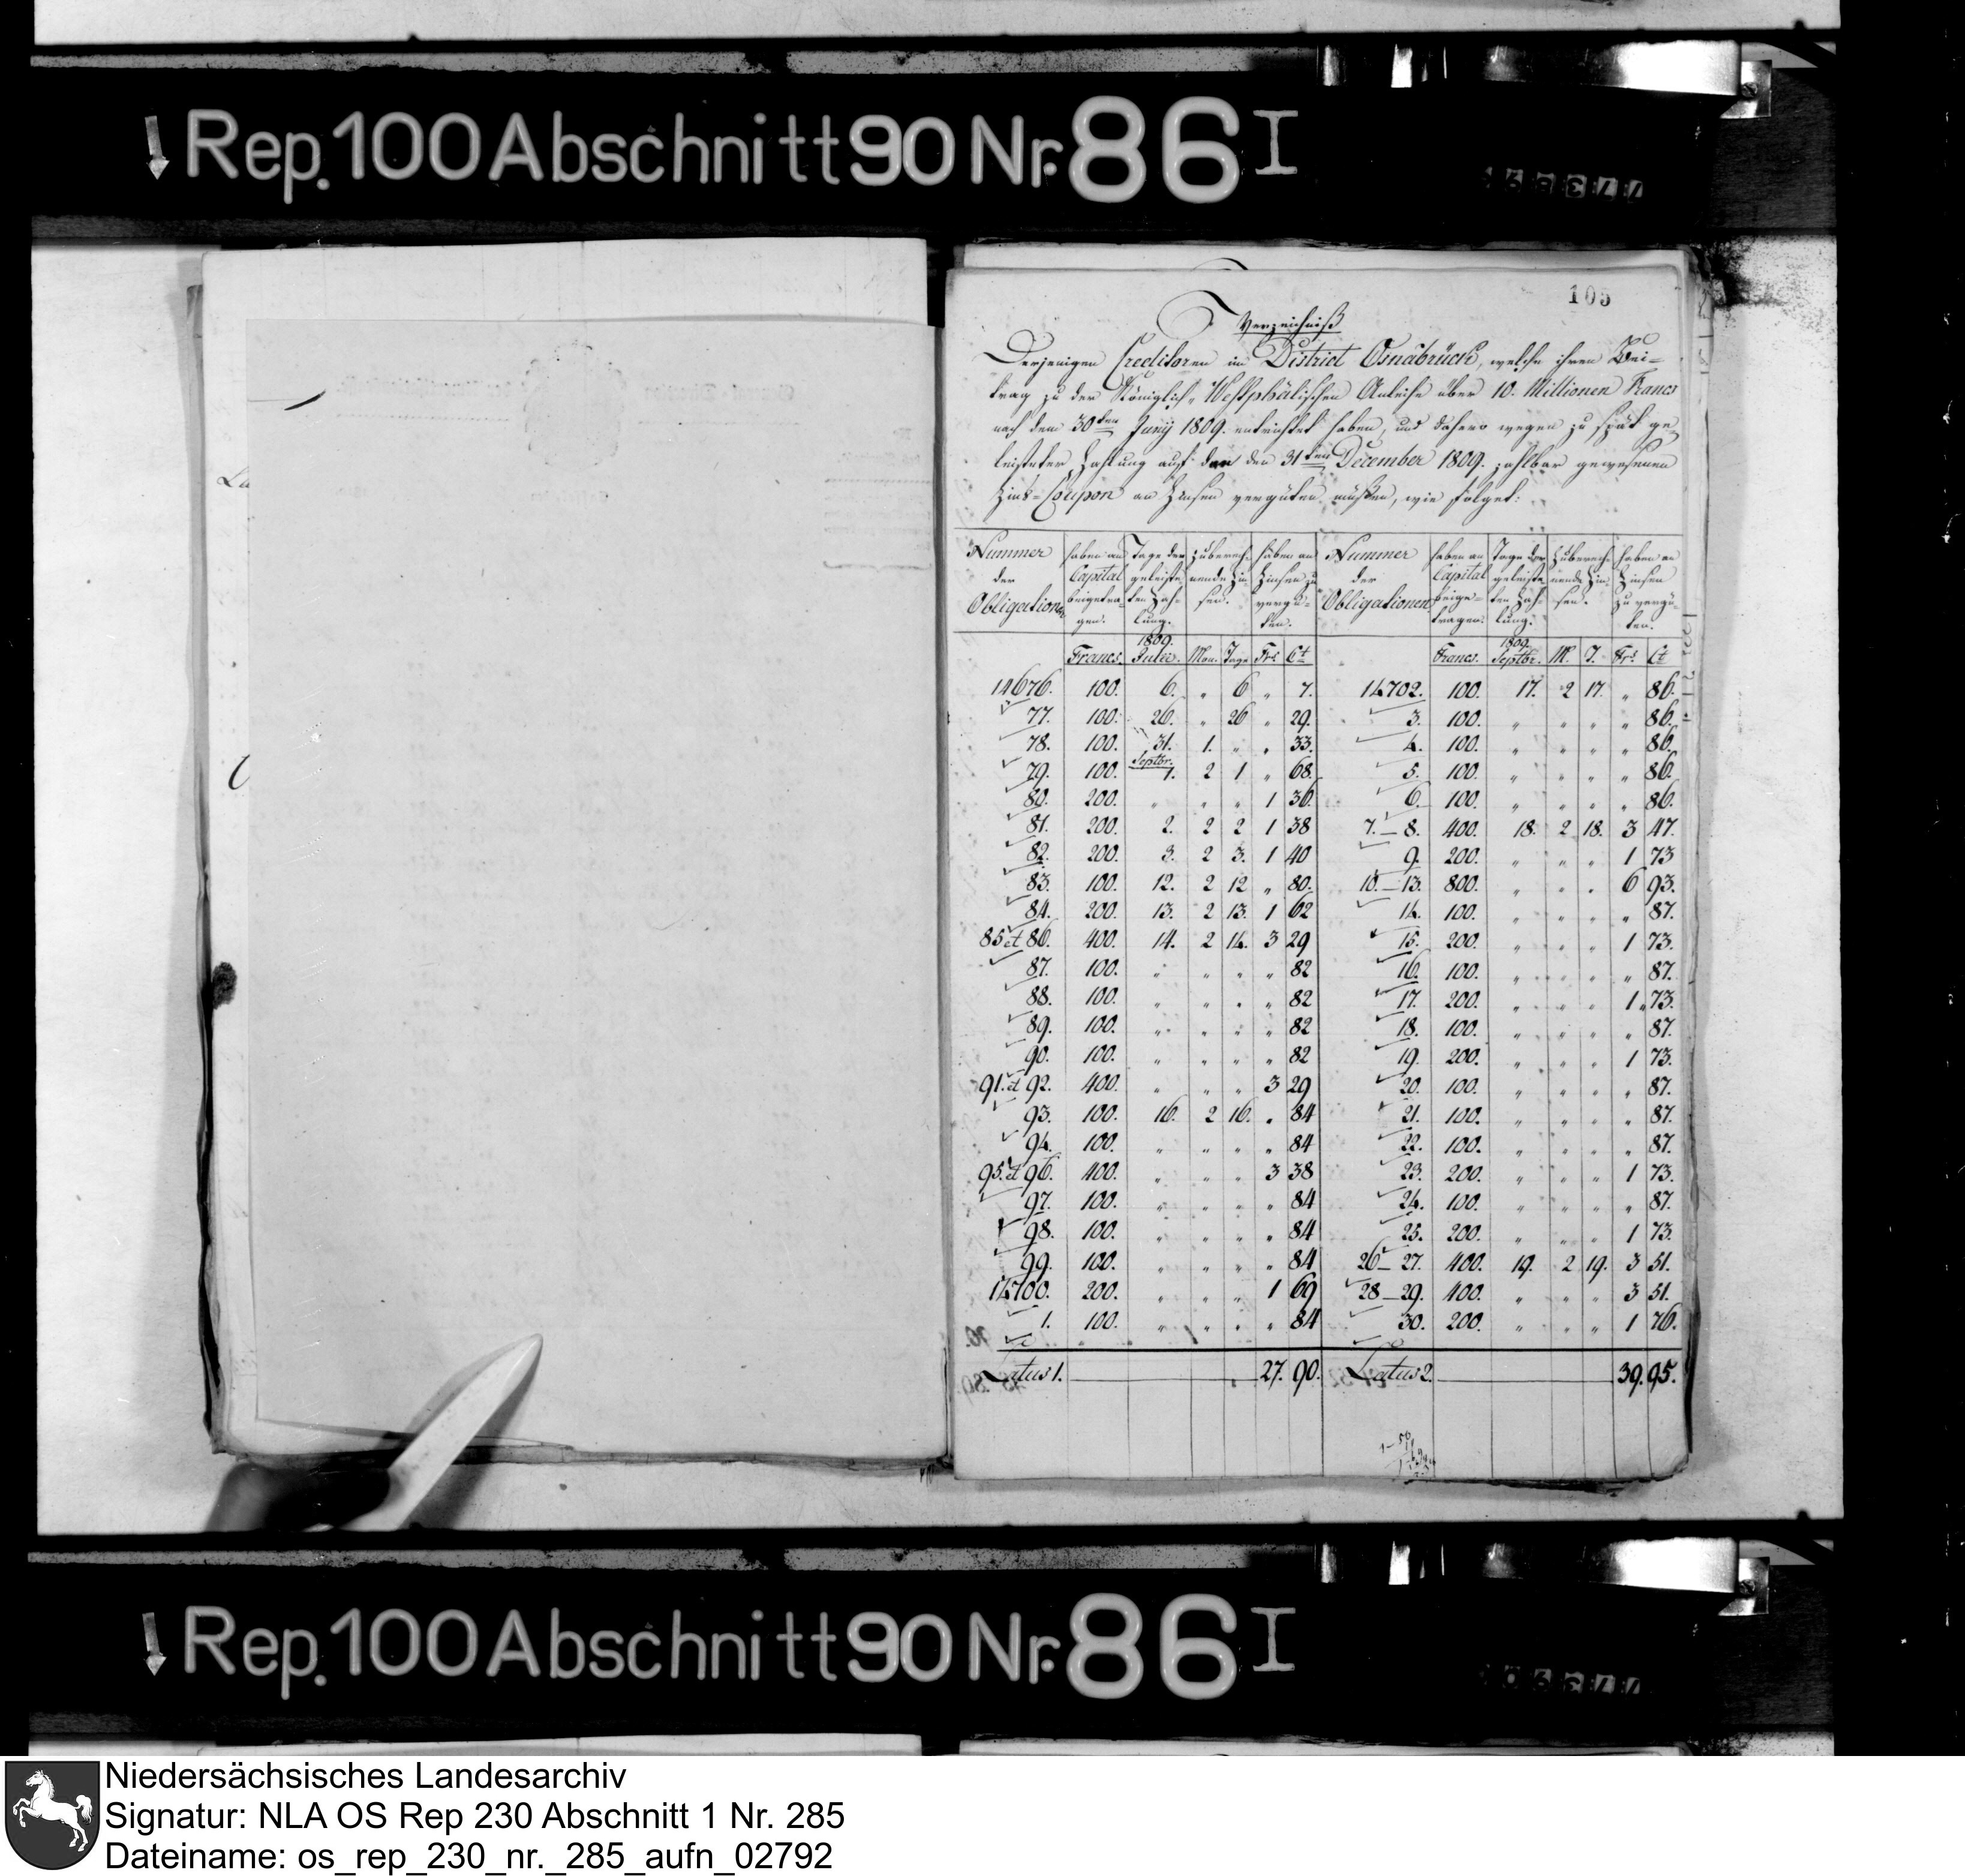 Rep. 100 Abschnitt 90 Nr. 86 I
105
Verzeichniß
Derjenigen Creditoren im District Osnabrück, welche ihren Bei=
trag zu der Königlich-Westphälischen Anleihe über 10. Millionen Francs
nach dem 30ten Juny 1809. entrichtet haben, und dahero wegen zu spät ge=
leisteter Zahlung auf den der 31ten December 1809. zahlbar gewesenen
Zins=Coupon an Zinsen vergüten müßen, wie folget:
Nummer der Obligationen haben an Capital beigetra=gen. Tage der geleiste=ten Zah=lung. zu berech=nende Zin=sen. haben an Zinsen zu vergü=ten. Nummer der Obligationen haben an Capital beige=tragen. Tage der geleiste=ten Zah=lung. zu berech=nende Zin=sen. haben an Zinsen zu vergü=ten.
1809. 1809.
Francs. Julii. Mon. Tage Frs Ct Francs. Septbr. M. T. Frs Ct
14676. 100. 6. " 6 " 7. 14702. 100. 17. 2 17. " 86.
77. 100. 26. " 26 " 29. 3. 100. " " " " 86.
78. 100. 31. 1. " " 33. 4. 100. " " " " 86.
Septbr.
79. 100. 1. 2 1 " 68. 5. 100. " " " " 86.
80. 200. " " " 1 36. 6. 100. " " " " 86.
81. 200. 2. 2 2 1 38 7. – 8. 400. 18. 2 18. 3 47.
82. 200. 3. 2 3. 1 40 9. 200. " " " 1 73
83. 100. 12. 2 12 " 80. 10. – 13. 800. " " " 6 93.
84. 200. 13. 2 13. 1 62 14. 100. " " " " 87.
85 et 86. 400. 14. 2 14. 3 29 15. 200. " " " 1 73.
87. 100. " " " " 82 16. 100. " " " " 87.
88. 100. " " " " 82 17. 200. " " " 1 73.
89. 100. " " " " 82 18. 100. " " " " 87.
90. 100. " " " " 82 19. 200. " " " 1 73.
91. et 92. 400. " " " 3 29 20. 100. " " " " 87.
93. 100. 16. 2 16. " 84 21. 100. " " " " 87.
94. 100. " " " " 84 22. 100. " " " " 87.
95. et 96. 400. " " " 3 38 23. 200. " " " 1 73.
97. 100. " " " " 84 24. 100. " " " " 87.
98. 100. " " " " 84 25. 200. " " " 1 73.
99. 100. " " " " 84 26 – 27. 400. 19. 2 19. 3 51.
14700. 200. " " " 1 69 28 – 29. 400. " " " 3 51.
1. 100. " " " " 84 30. 200. " " " 1 76.
Latus 1. 27. 90. Latus 2. 39. 95.
Rep. 100 Abschnitt 90 Nr. 86 I
Niedersächsisches Landesarchiv
Signatur: NLA OS Rep 230 Abschnitt 1 Nr. 285
Dateiname: os_rep_230_nr._285_aufn_02792